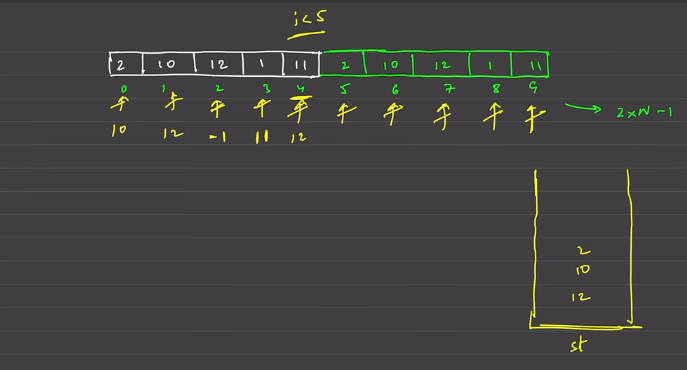 i<5
2 10 12 1 11 2 10 12 1 11
0 1 2 3 4 5 6 7 8 9
→ 2xN-1
10 12 -1 11 12
2
10
12
st